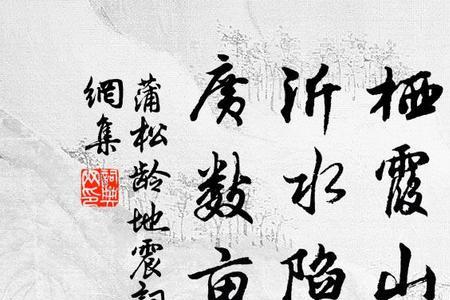 栖霞山
沂水陷
廣数亩
蒲松龄地震詞
網集